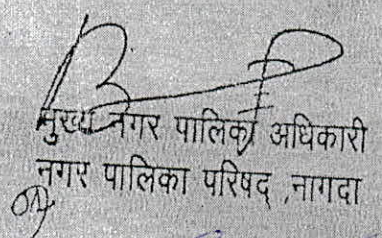 मुख्य नगर पालिका अधिकारी
नगर पालिका परिषद् ,नागदा